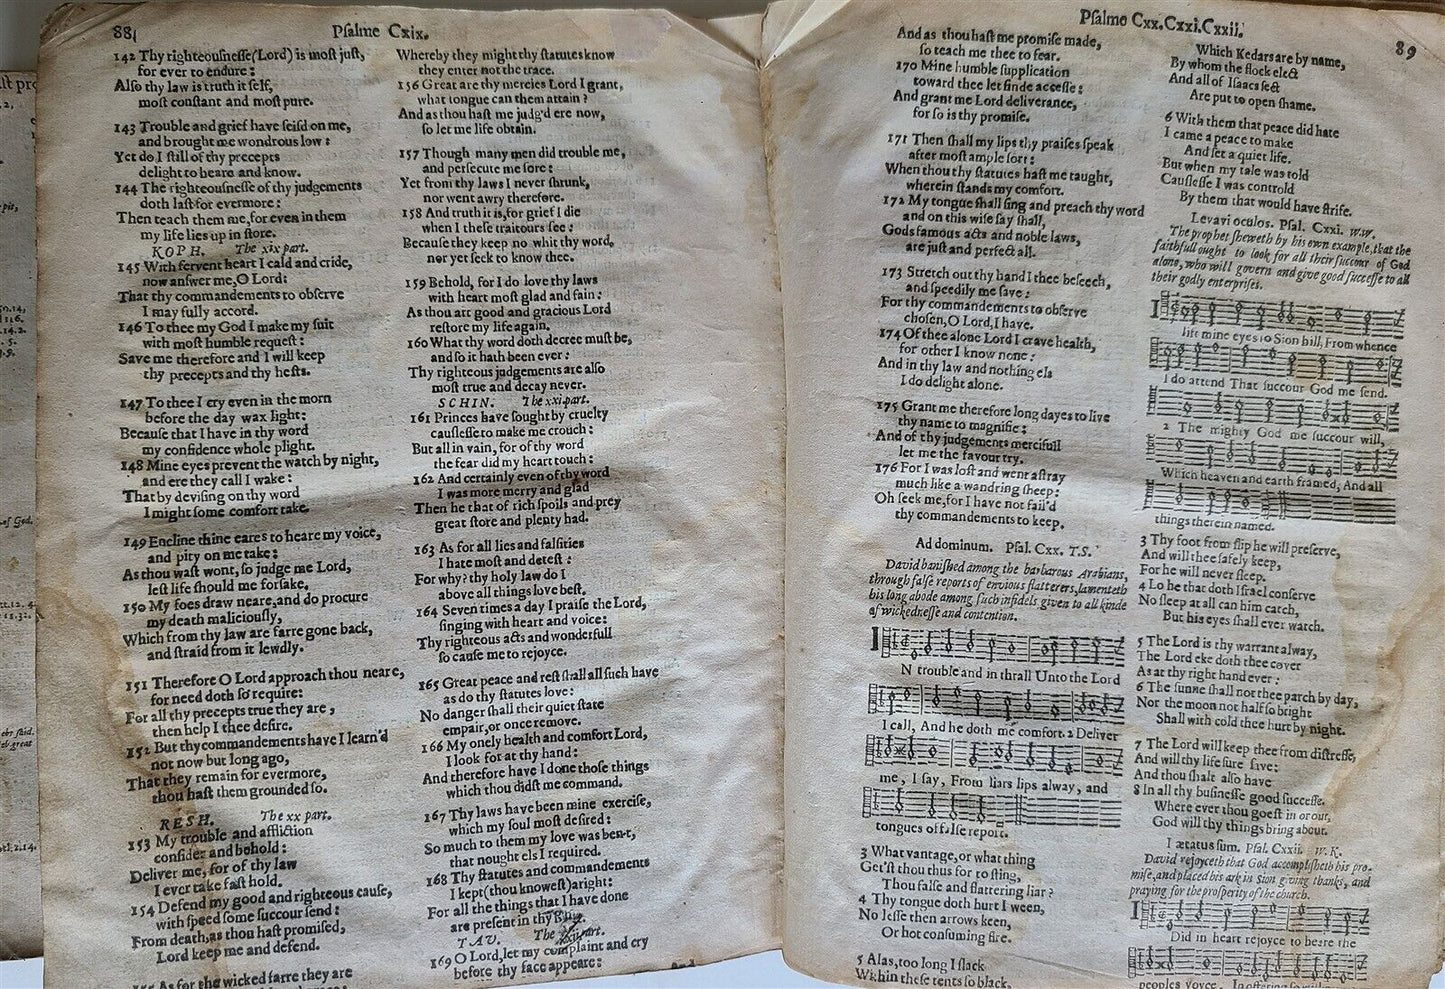 88
Psalme Cxix.
142 Thy righteousnesse(Lord) is most just,
for ever to endure:
Also thy law is truth it self,
most constant and most pure.
143 Trouble and grief have seisd on me,
and brought me wondrous low:
Yet do I still of thy precepts
delight to heare and know.
144 The righteousnesse of thy judgements
doth last for evermore:
Then teach them me, for even in them
my life lies up in store.
KOPH. The xix part.
145 With fervent heart I cald and cride,
now answer me, O Lord:
That thy commandements to observe
I may fully accord.
146 To thee my God I make my suit
with most humble request:
Save me therefore and I will keep
thy precepts and thy hests.
147 To thee I cry even in the morn
before the day wax light:
Because that I have in thy word
my confidence whole plight.
148 Mine eyes prevent the watch by night,
and ere they call I wake:
That by devising on thy word
I might some comfort take.
149 Encline thine eares to heare my voice,
and pity on me take:
As thou wast wont, so judge me Lord,
lest life should me forsake.
150 My foes draw neare, and do procure
my death maliciously,
Which from thy law are farre gone back,
and straid from it lewdly.
151 Therefore O Lord approach thou neare,
for need doth so require:
For all thy precepts true they are,
then help I thee desire.
152 But thy commandements have I learn'd
not now but long ago,
That they remain for evermore,
thou hast them grounded so.
RESH. The xx part.
153 My trouble and affliction
consider and behold:
Deliver me, for of thy law
I ever take fast hold.
154 Defend my good and righteous cause,
with speed some succour send:
From death, as thou hast promised,
Lord keep me and defend.
As for the wicked farre they are
Whereby they might thy statutes know
they enter not the trace.
156 Great are thy mercies Lord I grant,
what tongue can them attain?
And as thou hast me judg'd ere now,
so let me life obtain.
157 Though many men did trouble me,
and persecute me sore:
Yet from thy laws I never shrunk,
nor went awry therefore.
158 And truth it is, for grief I die
when I these traitours see:
Because they keep no whit thy word,
nor yet seek to know thee.
159 Behold, for I do love thy laws
with heart most glad and fain:
As thou art good and gracious Lord
restore my life again.
160 What thy word doth decree must be,
and so it hath been ever:
Thy righteous judgements are also
most true and decay never.
SCHIN. The xxi part.
161 Princes have sought by cruelty
causlesse to make me crouch:
But all in vain, for of thy word
the fear did my heart touch:
162 And certainly even of thy word
I was more merry and glad
Then he that of rich spoils and prey
great store and plenty had.
163 As for all lies and falsities
I hate most and detest:
For why? thy holy law do I
above all things love best.
164 Seven times a day I praise the Lord,
singing with heart and voice:
Thy righteous acts and wonderfull
so cause me to rejoyce.
165 Great peace and rest shall all such have
as do thy statutes love:
No danger shall their quiet state
empair, or once remove.
166 My onely health and comfort Lord,
I look for at thy hand:
And therefore have I done those things
which thou didst me command.
167 Thy laws have been mine exercise,
which my soul most desired:
So much to them my love was bent,
that nought els I required.
168 Thy statutes and commandements
I kept (thou knowest) aright:
For all the things that I have done
are present in thy
TAV. The xxii part.
169 O Lord, let my complaint and cry
before thy face appeare:
And
Psalme Cxx. Cxxi. Cxxii.
89
And as thou hast me promise made,
so teach me thee to fear.
170 Mine humble supplication
toward thee let finde accesse:
And grant me Lord deliverance,
for so is thy promise.
171 Then shall my lips thy praises speak
after most ample sort:
When thou thy statutes hast me taught,
wherein stands my comfort.
172 My tongue shall sing and preach thy word
and on this wise say shall,
Gods famous acts and noble laws,
are just and perfect all.
173 Stretch out thy hand I thee beseech,
and speedily me save:
For thy commandements to observe
chosen, O Lord, I have.
174 Of thee alone Lord I crave health,
for other I know none:
And in thy law and nothing els
I do delight alone.
175 Grant me therefore long dayes to live
thy name to magnifie:
And of thy judgements mercifull
let me the favour try.
176 For I was lost and went astray
much like a wandring sheep:
Oh seek me, for I have not fail'd
thy commandements to keep.
Ad dominum. Psal. Cxx. T.S.
David banished among the barbarous Arabians,
through false reports of envious flatterers, lamenteth
his long abode among such infidels given to all kinde
of wickednesse and contention.
IN trouble and in thrall Unto the Lord
I call, And he doth me comfort. 2 Deliver
me, I say, From liars lips alway, and
tongues of false report.
3 What vantage, or what thing
Get'st thou thus for to sting,
Thou false and flattering liar?
4 Thy tongue doth hurt I ween,
No lesse then arrows keen,
Or hot consuming fire.
5 Alas, too long I slack
Within these tents so black,
Which Kedars are by name,
By whom the flock elect
And all of Isaacs sect
Are put to open shame.
6 With them that peace did hate
I came a peace to make
And set a quiet life.
But when my tale was told
Causlesse I was controld
By them that would have strife.
Levavi oculos. Psal. Cxxi. W.W.
The prophet sheweth by his own example, that the
faithfull ought to look for all their succour of God
alone, who will govern and give good successe to all
their godly enterprises.
I lift mine eyes to Sion hill, From whence
I do attend That succour God me send.
2 The mighty God me succour will,
Which heaven and earth framed, And all
things therein named.
3 Thy foot from slip he will preserve,
And will thee safely keep,
For he will never sleep.
4 Lo he that doth Israel conserve
No sleep at all can him catch,
But his eyes shall ever watch.
5 The Lord is thy warrant alway,
The Lord eke doth thee cover
As at thy right hand ever:
6 The sunne shall not thee parch by day,
Nor the moon not half so bright
Shall with cold thee hurt by night.
7 The Lord will keep thee from distresse,
And will thy life sure save:
And thou shalt also have
8 In all thy businesse good successe.
Where ever thou goest in or out,
God will thy things bring about.
Lætatus sum. Psal. Cxxii. W.K.
David rejoyceth that God accomplisheth his pro-
mise, and placed his ark in Sion giving thanks, and
praying for the prosperity of the church.
I Did in heart rejoyce to heare the
peoples voyce, In offering so